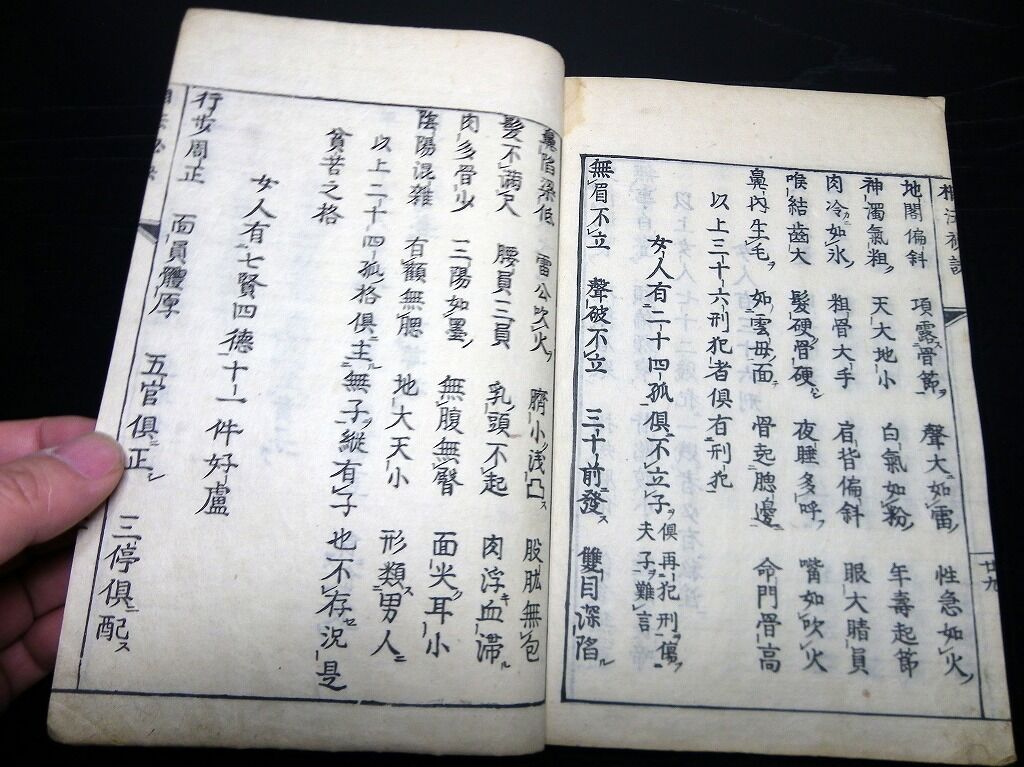 地閣偏斜 項露骨節 聲大如雷 性急如火
神濁氣粗 天大地小 白氣如粉 年壽起節
肉冷如氷 粗骨大手 肩背偏斜 眼大睛員
喉結齒大 髮硬骨硬 夜睡多呼 嘴如吹火
鼻內生毛 如雪毋面 骨起腮邊 命門骨高
以上三十六刑犯者俱有刑犯
女人有二十四孤俱不立子俱再犯刑傷夫子難言
無眉不立 聲破不立 三十前發 雙目深陷
鼻陷梁低 雷公吹火 臍小淺凸 股肱無包
髮不滿尺 腰員三員 乳頭不起 肉浮血滯
肉多骨少 三陽如墨 無腹無臀 面尖耳小
陰陽混雜 有顴無腮 地大天小 形類男人
以上二十四孤格俱主無子縱有子也不存況是
貧苦之格
女人有七賢四德十一件好處
行步周正 面員體厚 五官俱正 三停俱配
廿九